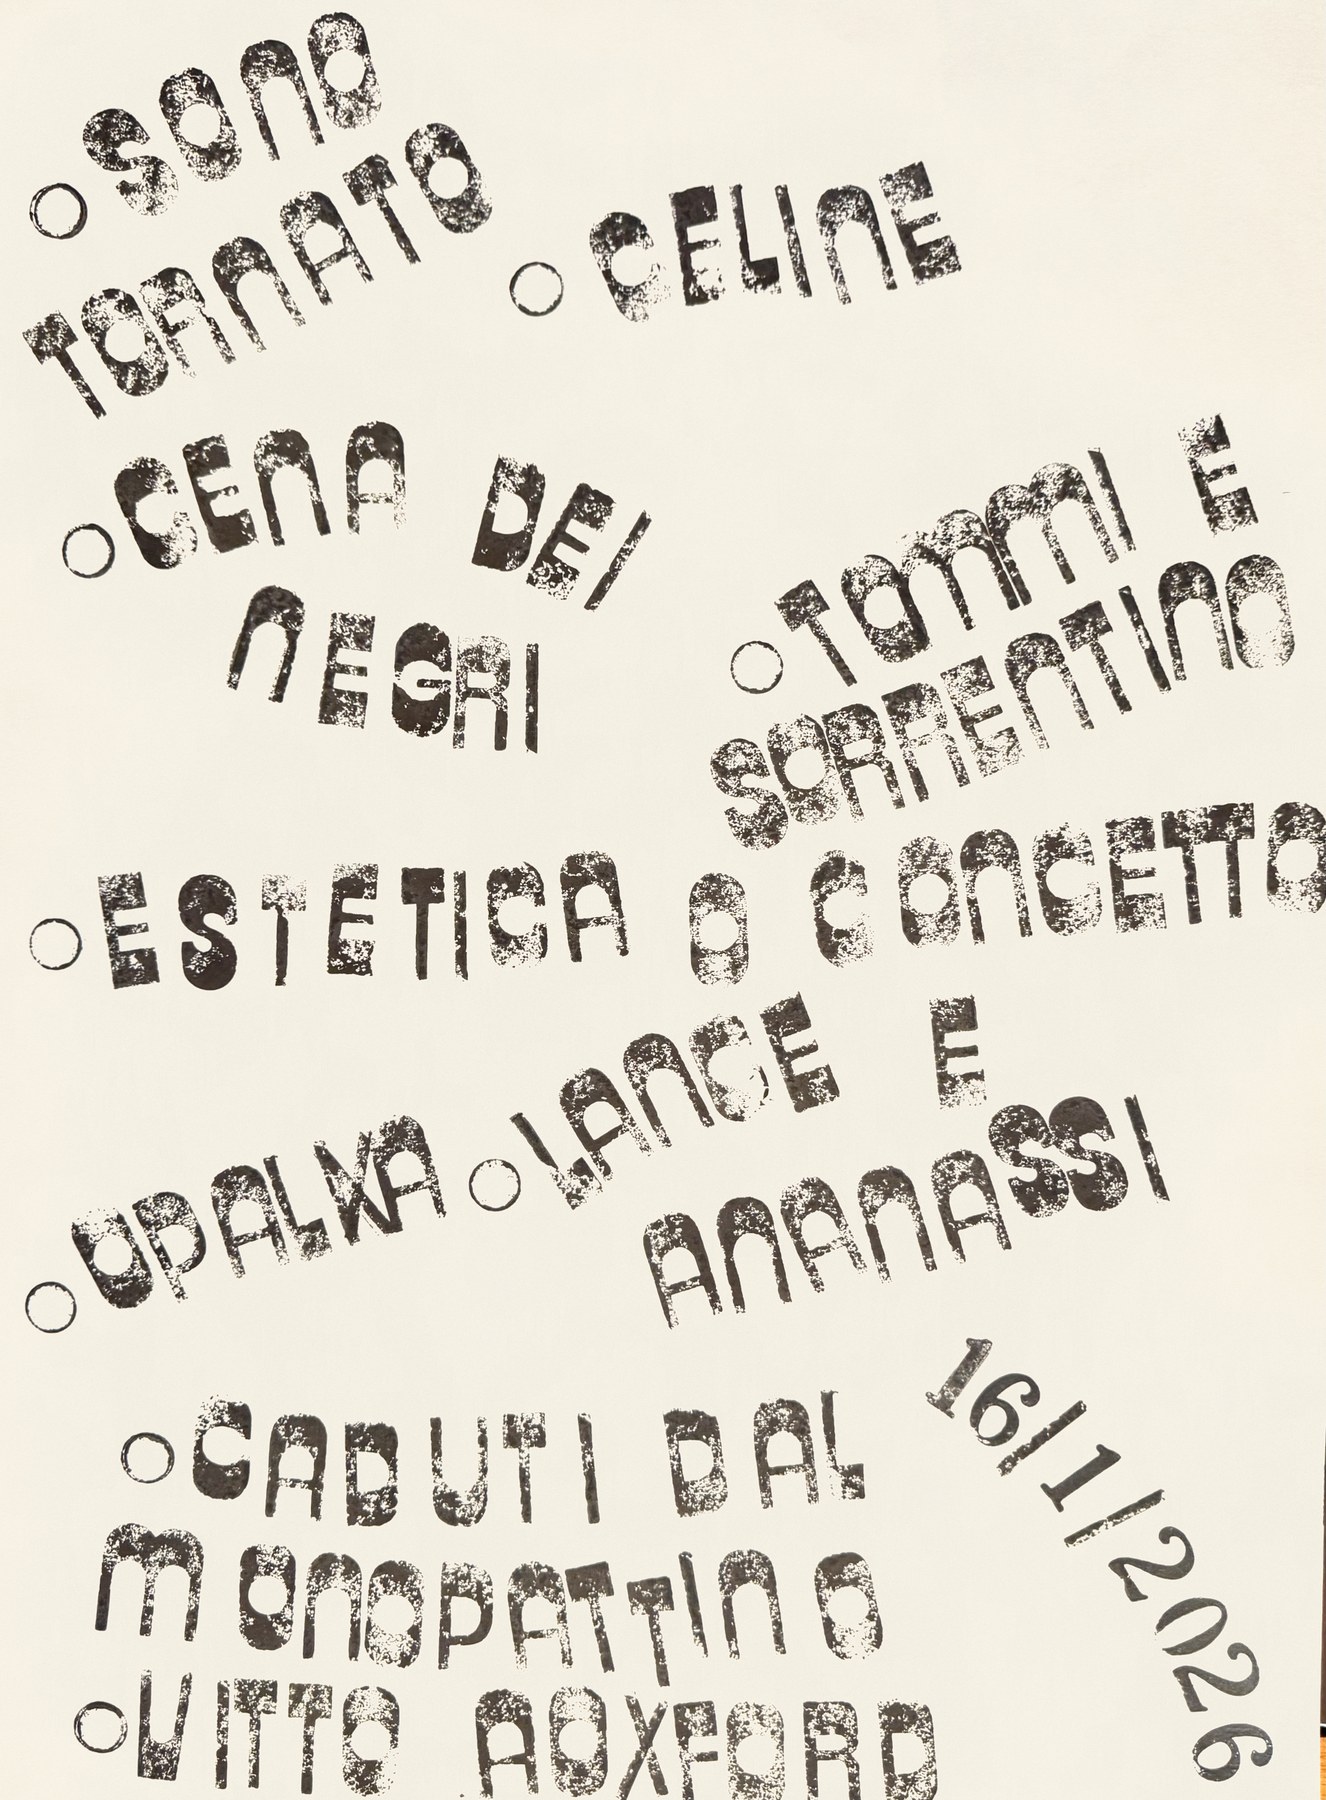 SONO
TORNATO
CELINE
CENA DEI
NEGRI
TOMMI E
SORRENTINO
ESTETICA O CONCETTO
OPALKA
LANCE E
ANANASSI
CADUTI DAL
MONOPATTINO
VITTO A OXFORD
16/1/2026